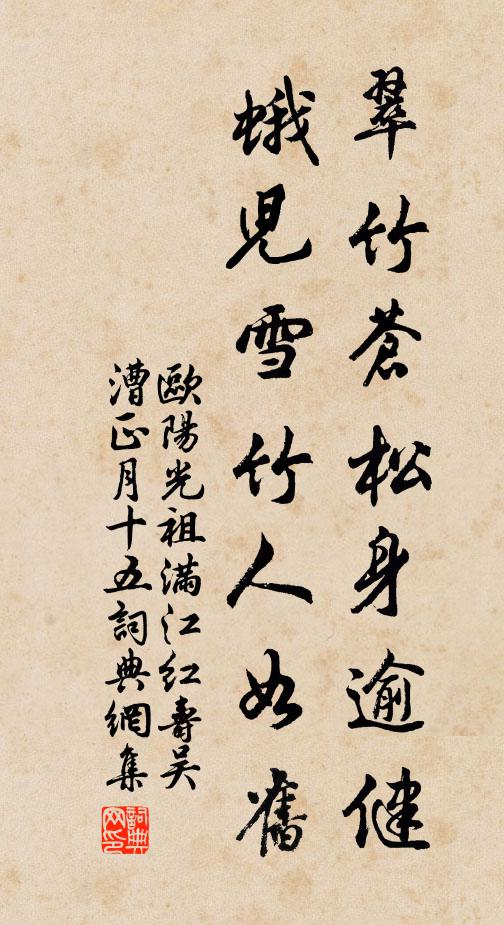 翠竹蒼松身逾健
蛾兒雪竹人如舊
歐陽光祖滿江红壽吴
漕正月十五詞典網集
詞典网印